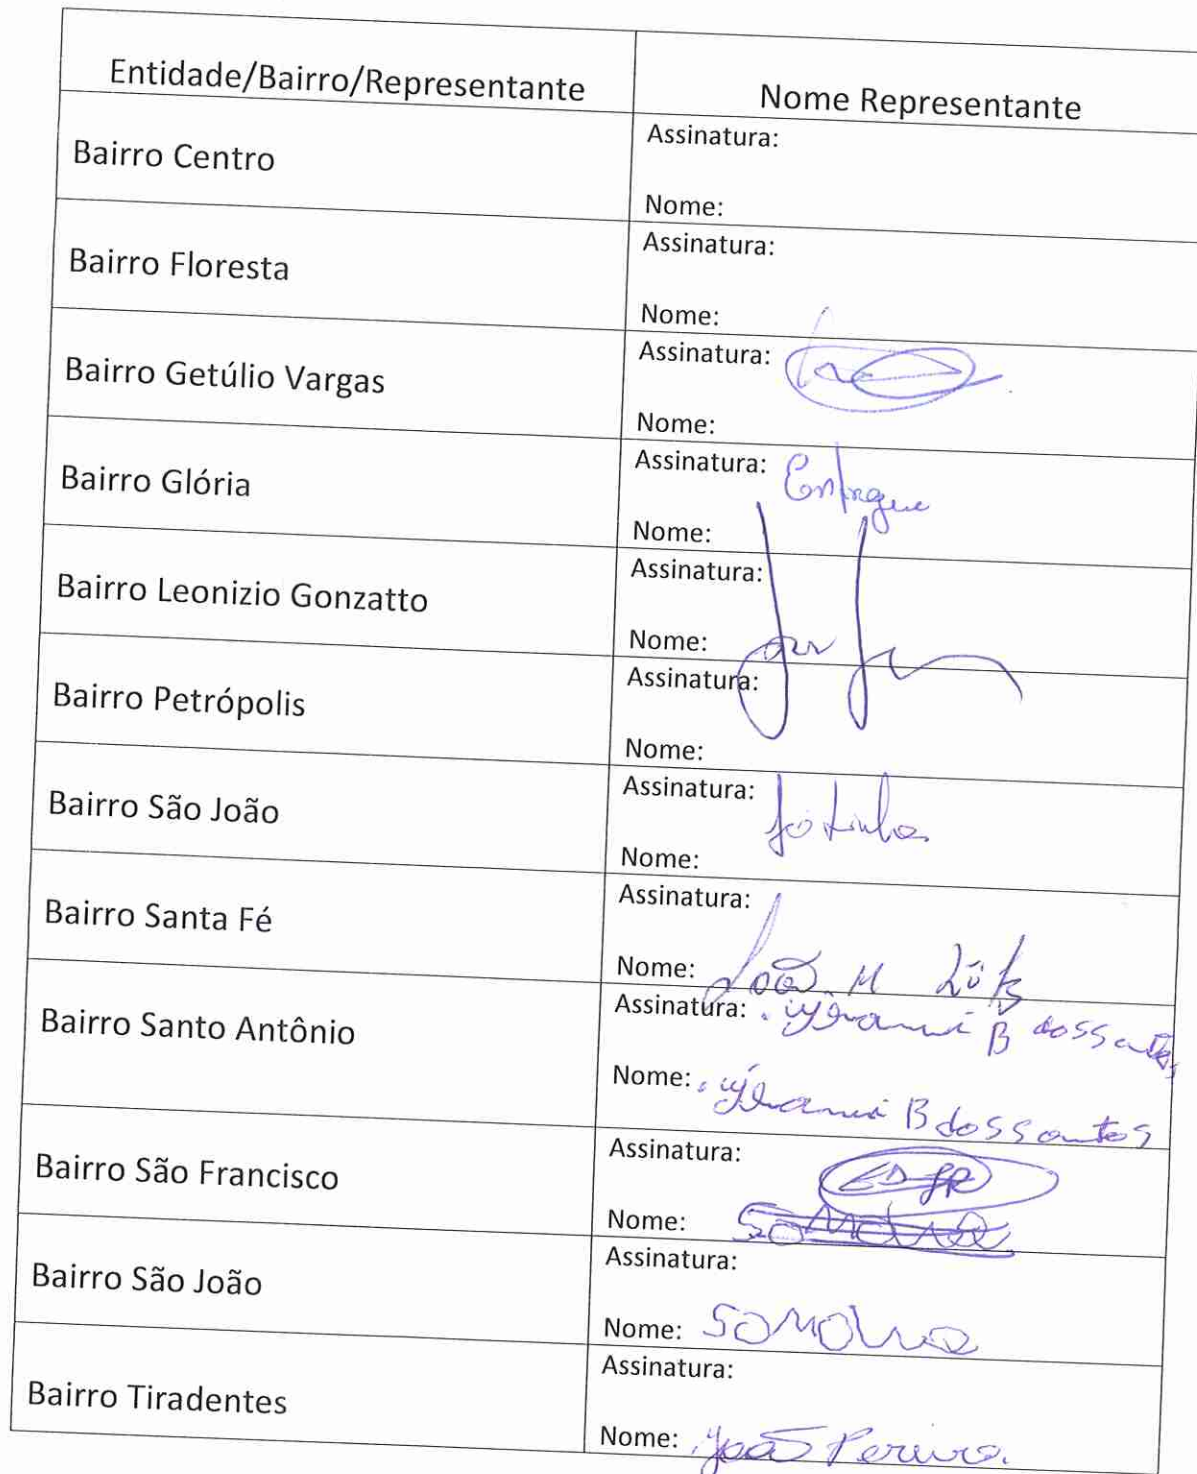 Entidade/Bairro/Representante
Nome Representante
Bairro Centro
Assinatura:
Nome:
Bairro Floresta
Assinatura:
Nome:
Bairro Getúlio Vargas
Assinatura:
Nome:
Bairro Glória
Assinatura: Entregue
Nome:
Bairro Leonizio Gonzatto
Assinatura:
Nome:
Bairro Petrópolis
Assinatura:
Nome:
Bairro São João
Assinatura:
Nome:
Bairro Santa Fé
Assinatura:
Nome: João M
Bairro Santo Antônio
Assinatura: B dos Santos
Nome: B dos Santos
Bairro São Francisco
Assinatura:
Nome:
Bairro São João
Assinatura:
Nome: Sandra
Bairro Tiradentes
Assinatura:
Nome: João Pereira.